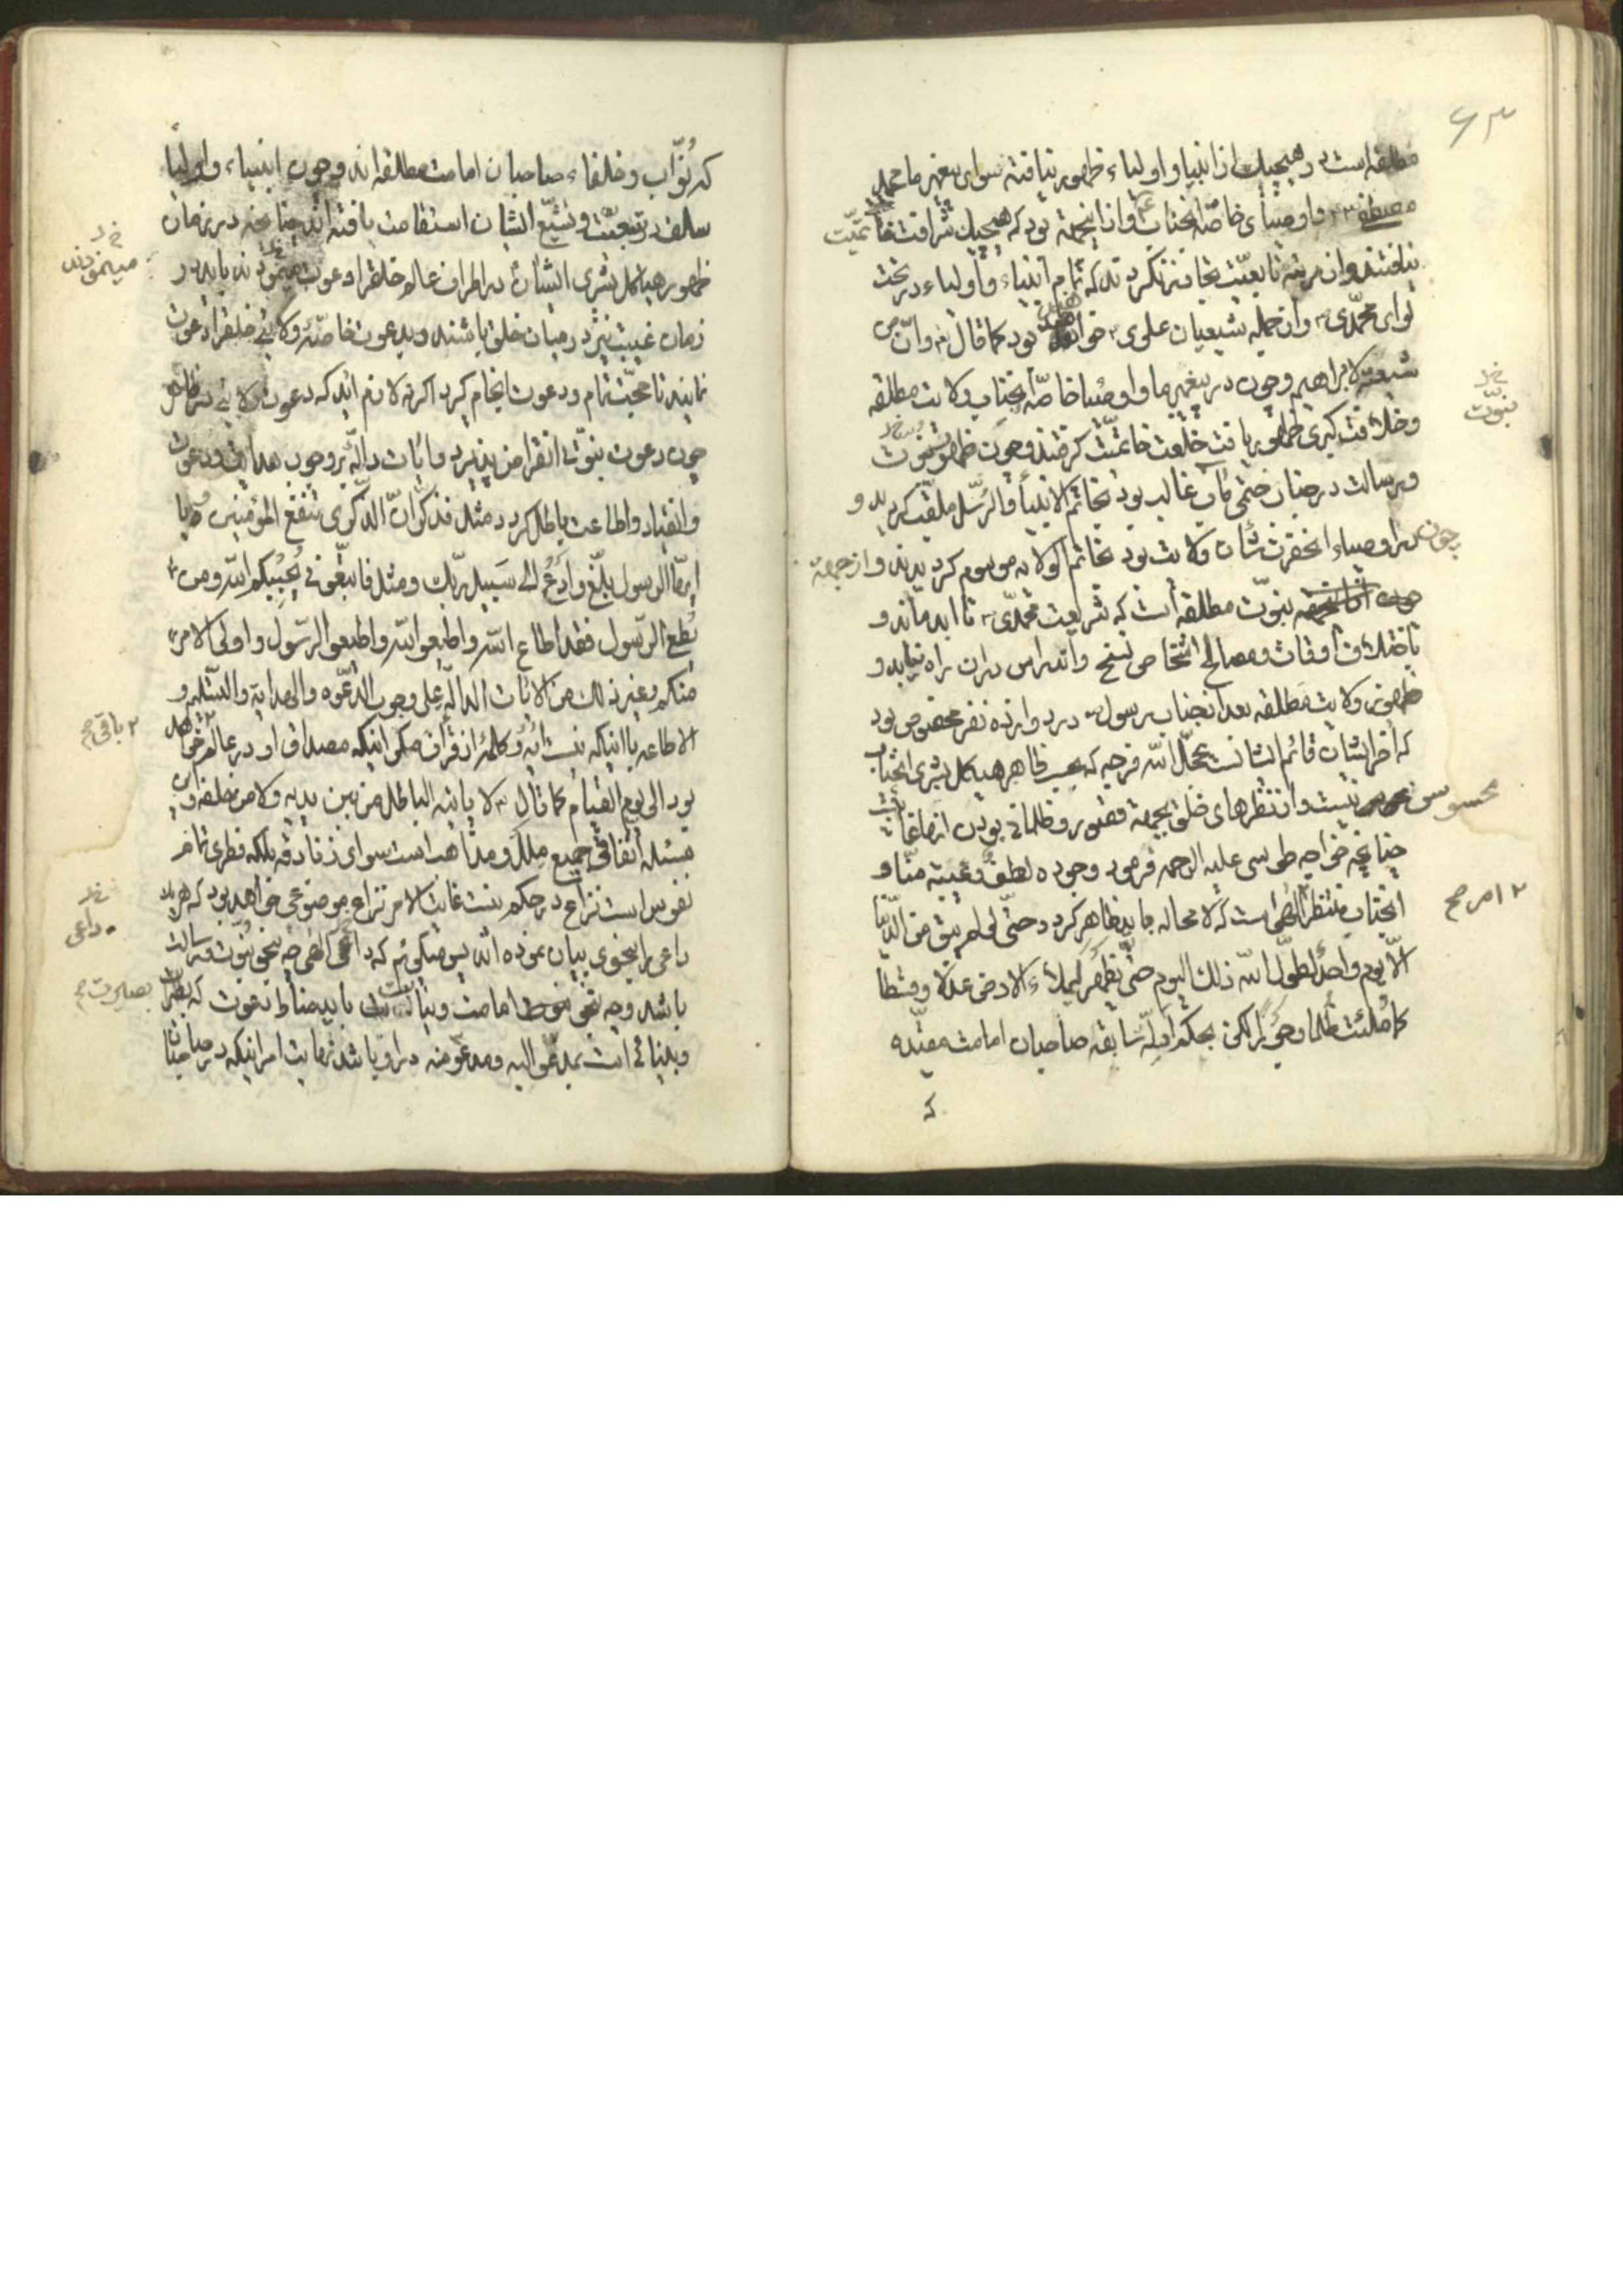 ۶۳
مطلقه است در هیچیك از انبیا و اولیاء ظهور نیافته سوای پیغمبر ما محمد
مصطفی ص و اوصیای خاصّه انجناب و از اینجهة بود که هیچیك شرافت خاتمیّت
نیافتند و از مرتبه تابعیّت تجاوز نکردند که تمام انبیاء و اولیاء در تحت
لوای محمّدی ص و از جمله شیعیان علوی ع خواهند بود کما قال ص و انّ من
شیعته لابراهیم و چون در پیغمبر ما و اوصیا خاصّه انجناب ولایت مطلقه
و خلافت کبری ظهور یافت خلعت خاتمیّت گرفتند و چون ظهور نبوت
و رسالت در جناب ختمی مآب غالب بود بخاتم الانبیاء و الرّسل ملقّب کردید و
چون در اوصیاء انحضرت شأن ولایت بود بخاتم الولایه موسوم کردیدند و از جهة
نبوّت مطلقه است که شریعت محمّدی ص تا ابد ماند و
باختلاف اوقات و مصالح اشخاص نسخ و اندراس دران راه نیابد و
ظهور ولایت مطلقه بعد از جناب رسول ص در دوازده نفر مخصوص بود
که آخر ایشان قائم ایشانست عجّل الله فرجه که بحسب ظاهر هیاکل بشری انجناب
محسوس نیست و از نظرهای خلق بجهة قصور و ظلمانی بودن انها غایبست
چنانچه خواجه طوسی علیه الرحمه فرمود وجوده لطف و غیبته منّا و
انجناب منتظر امر الهی است که لا محاله باید ظاهر کردد حتّی لو لم یبق من الدّنیا
الّا یوم واحد لطوّل الله ذلك الیوم حتّی یظهر لیملأ الارض عدلا و قسطا
کما ملئت ظلما و جورا لکن بحکم ادلّه سابقه صاحبان امامت مقیّده
که
نبوّت
امر صح
که نوّاب و خلفاء صاحبان امامت مطلقه اند و چون انبیاء و اولیا
سلف در تبعیّت و تشیّع ایشان استقامت یافته اند چنانچه در زمان
ظهور هیاکل بشری ایشان در اطراف عالم خلقرا دعوت مینمودند باید در
زمان غیبت نیز در میان خلق باشند و بدعوت خاصّه ولایتی خلقرا دعوت
نمایند تا حجّت تمام و دعوت انجام کیرد اکر نه لازم اید که دعوت ولایتی نیز
چون دعوت نبوّتی انقراض پذیرد و ایات دالّه بر وجوب هدایت و دعوت
و انقیاد و اطاعت باطل کردد مثل فذکر انّ الذکری تنفع المؤمنین و یا
ایها الرسول بلّغ و ادع الی سبیل ربّك و مثل فاتبعونی یحببکم الله و من
یطع الرّسول فقد اطاع الله و اطیعوا الله و اطیعوا الرّسول و اولی الامر
منکم و غیر ذلك من الایات الدالّه علی وجوب الدّعوه و الهدایة و التسلیم و
الاطاعه با اینکه نیست ایه و کلمه از قران مکر اینکه مصداق او در عالم خواهد
بود الی یوم القیام کما قال ص لا یاتیه الباطل من بین یدیه و لا من خلفه و این
مسئله اتفاقی جمیع ملل و مذاهب است سوای زنادقه بلکه فطری تمام
نفوس است نزاع در حکم نیست غایت الامر نزاع موضوعی خواهد بود که هر یك
داعی را بنحوی بیان نموده اند پس میکوئیم که داعی الهی چه بنحو نبوّت و رسالت
باشد و چه بنحو امامت و نیابت باید مناط دعوت که بصیرت
و بینائی است بمدعو الیه و مدعو منه در او باشد نهایت امر اینکه در صاحبان
مینمودند
باقی صح
داعی
بصیرت صح